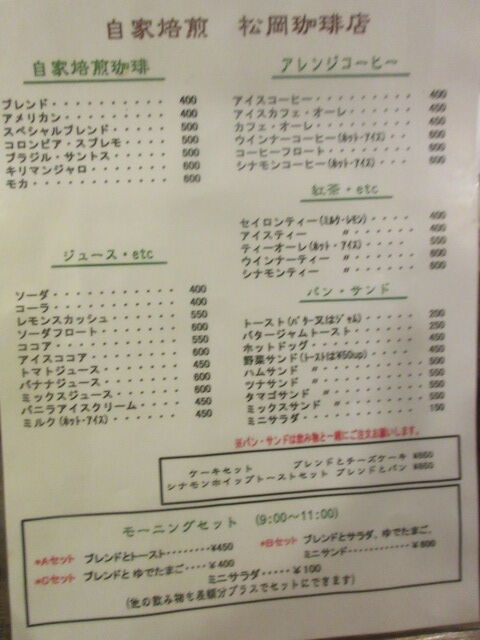 自家焙煎 松岡珈琲店
自家焙煎珈琲
ブレンド・・・・・・・・・・ 400
アメリカン・・・・・・・・・ 400
スペシャルブレンド・・・・・ 500
コロンビア・スプレモ・・・・ 500
ブラジル・サントス・・・・・ 500
キリマンジャロ・・・・・・・ 600
モカ・・・・・・・・・・・・ 600
アレンジコーヒー
アイスコーヒー・・・・・・・ 400
アイスカフェ・オーレ・・・・ 450
カフェ・オーレ・・・・・・・ 450
ウインナーコーヒー(ホット・アイス)・・
コーヒーフロート・・・・・・ 600
シナモンコーヒー(ホット・アイス)・・・
紅茶・etc
セイロンティー(ミルク・レモン)・・・・ 400
アイスティー 〃 ・・・・ 400
ティーオーレ(ホット・アイス)・・・・ 550
ウインナーティー 〃 ・・・・ 600
シナモンティー 〃 ・・・・ 600
ジュース・etc
ソーダ・・・・・・・・・・・ 400
コーラ・・・・・・・・・・・ 400
レモンスカッシュ・・・・・・ 550
ソーダフロート・・・・・・・ 600
ココア・・・・・・・・・・・ 550
アイスココア・・・・・・・・ 600
トマトジュース・・・・・・・ 450
バナナジュース・・・・・・・ 600
ミックスジュース・・・・・・ 600
バニラアイスクリーム・・・・ 450
ミルク(ホット・アイス)・・・・・・ 450
パン・サンド
トースト(バター又はジャム)・・・・・ 200
バタージャムトースト・・・・ 250
ホットドッグ・・・・・・・・ 450
野菜サンド(トーストは¥50up)・・・・ 450
ハムサンド 〃 ・・・・・ 500
ツナサンド 〃 ・・・・・ 550
タマゴサンド 〃 ・・・・・ 500
ミックスサンド 〃 ・・・・・ 550
ミニサラダ・・・・・・・・・ 150
※パン・サンドは飲み物と一緒にご注文お願いします。
ケーキセット ブレンドとチーズケーキ ¥650
シナモンホイップトーストセット ブレンドとパン ¥650
モーニングセット (9:00〜11:00)
*Aセット ブレンドとトースト・・・・・・・・¥450
*Bセット ブレンドとサラダ、ゆでたまご、
ミニサンド・・・・・・・・・・・¥600
*Cセット ブレンドと ゆでたまご・・・・¥400
ミニサラダ・・・・・¥100
(他の飲み物も差額分プラスでセットにできます)